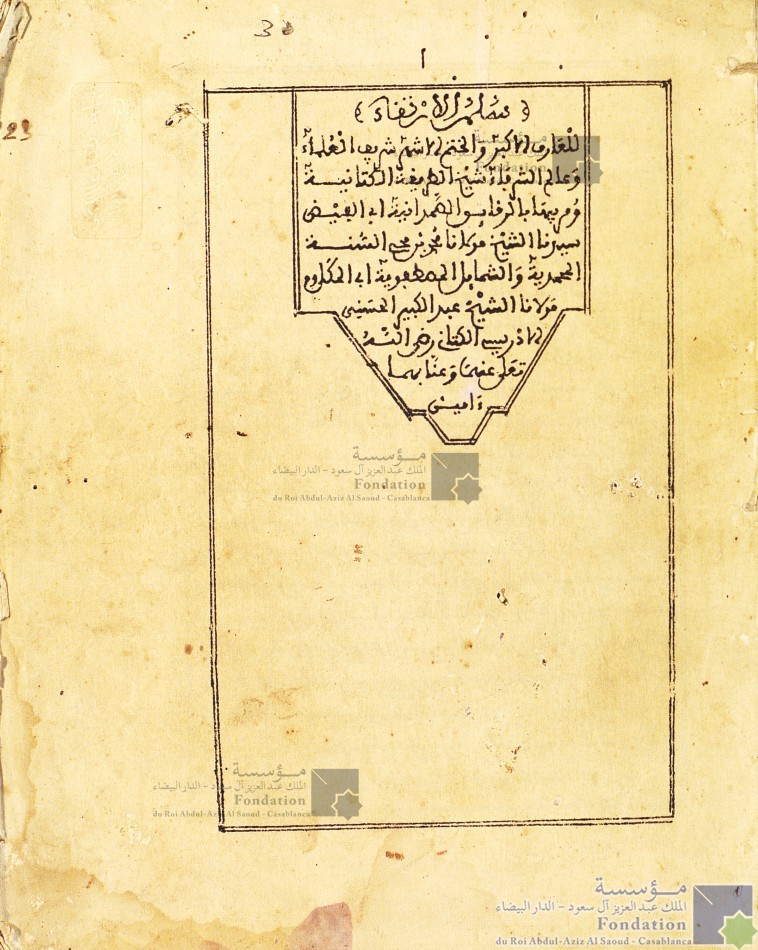 3
ا
23
﴿ سلم الارتقاء ﴾
للعارف الاكبر والختم الاشهر شريف العلماء
وعالم الشرفاء شيخ الطريقة الكتانية
الصمدانية ابى الفيض
سيدنا الشيخ مولانا محمد بن محيى السنة
المحمدية والشمايل المصطفوية ابى المكارم
مولانا الشيخ عبد الكبير الحسنى
الادريسى الكتانى رضى الله
تعلى عنهما وعنا بهما
ءامين
مؤسسة
الملك عبد العزيز آل سعود - الدار البيضاء
Fondation
du Roi Abdul-Aziz Al Saoud - Casablanca
مؤسسة
الملك عبد العزيز آل سعود - الدار البيضاء
Fondation
du Roi Abdul-Aziz Al Saoud - Casablanca
مؤسسة
الملك عبد العزيز آل سعود - الدار البيضاء
Fondation
du Roi Abdul-Aziz Al Saoud - Casablanca